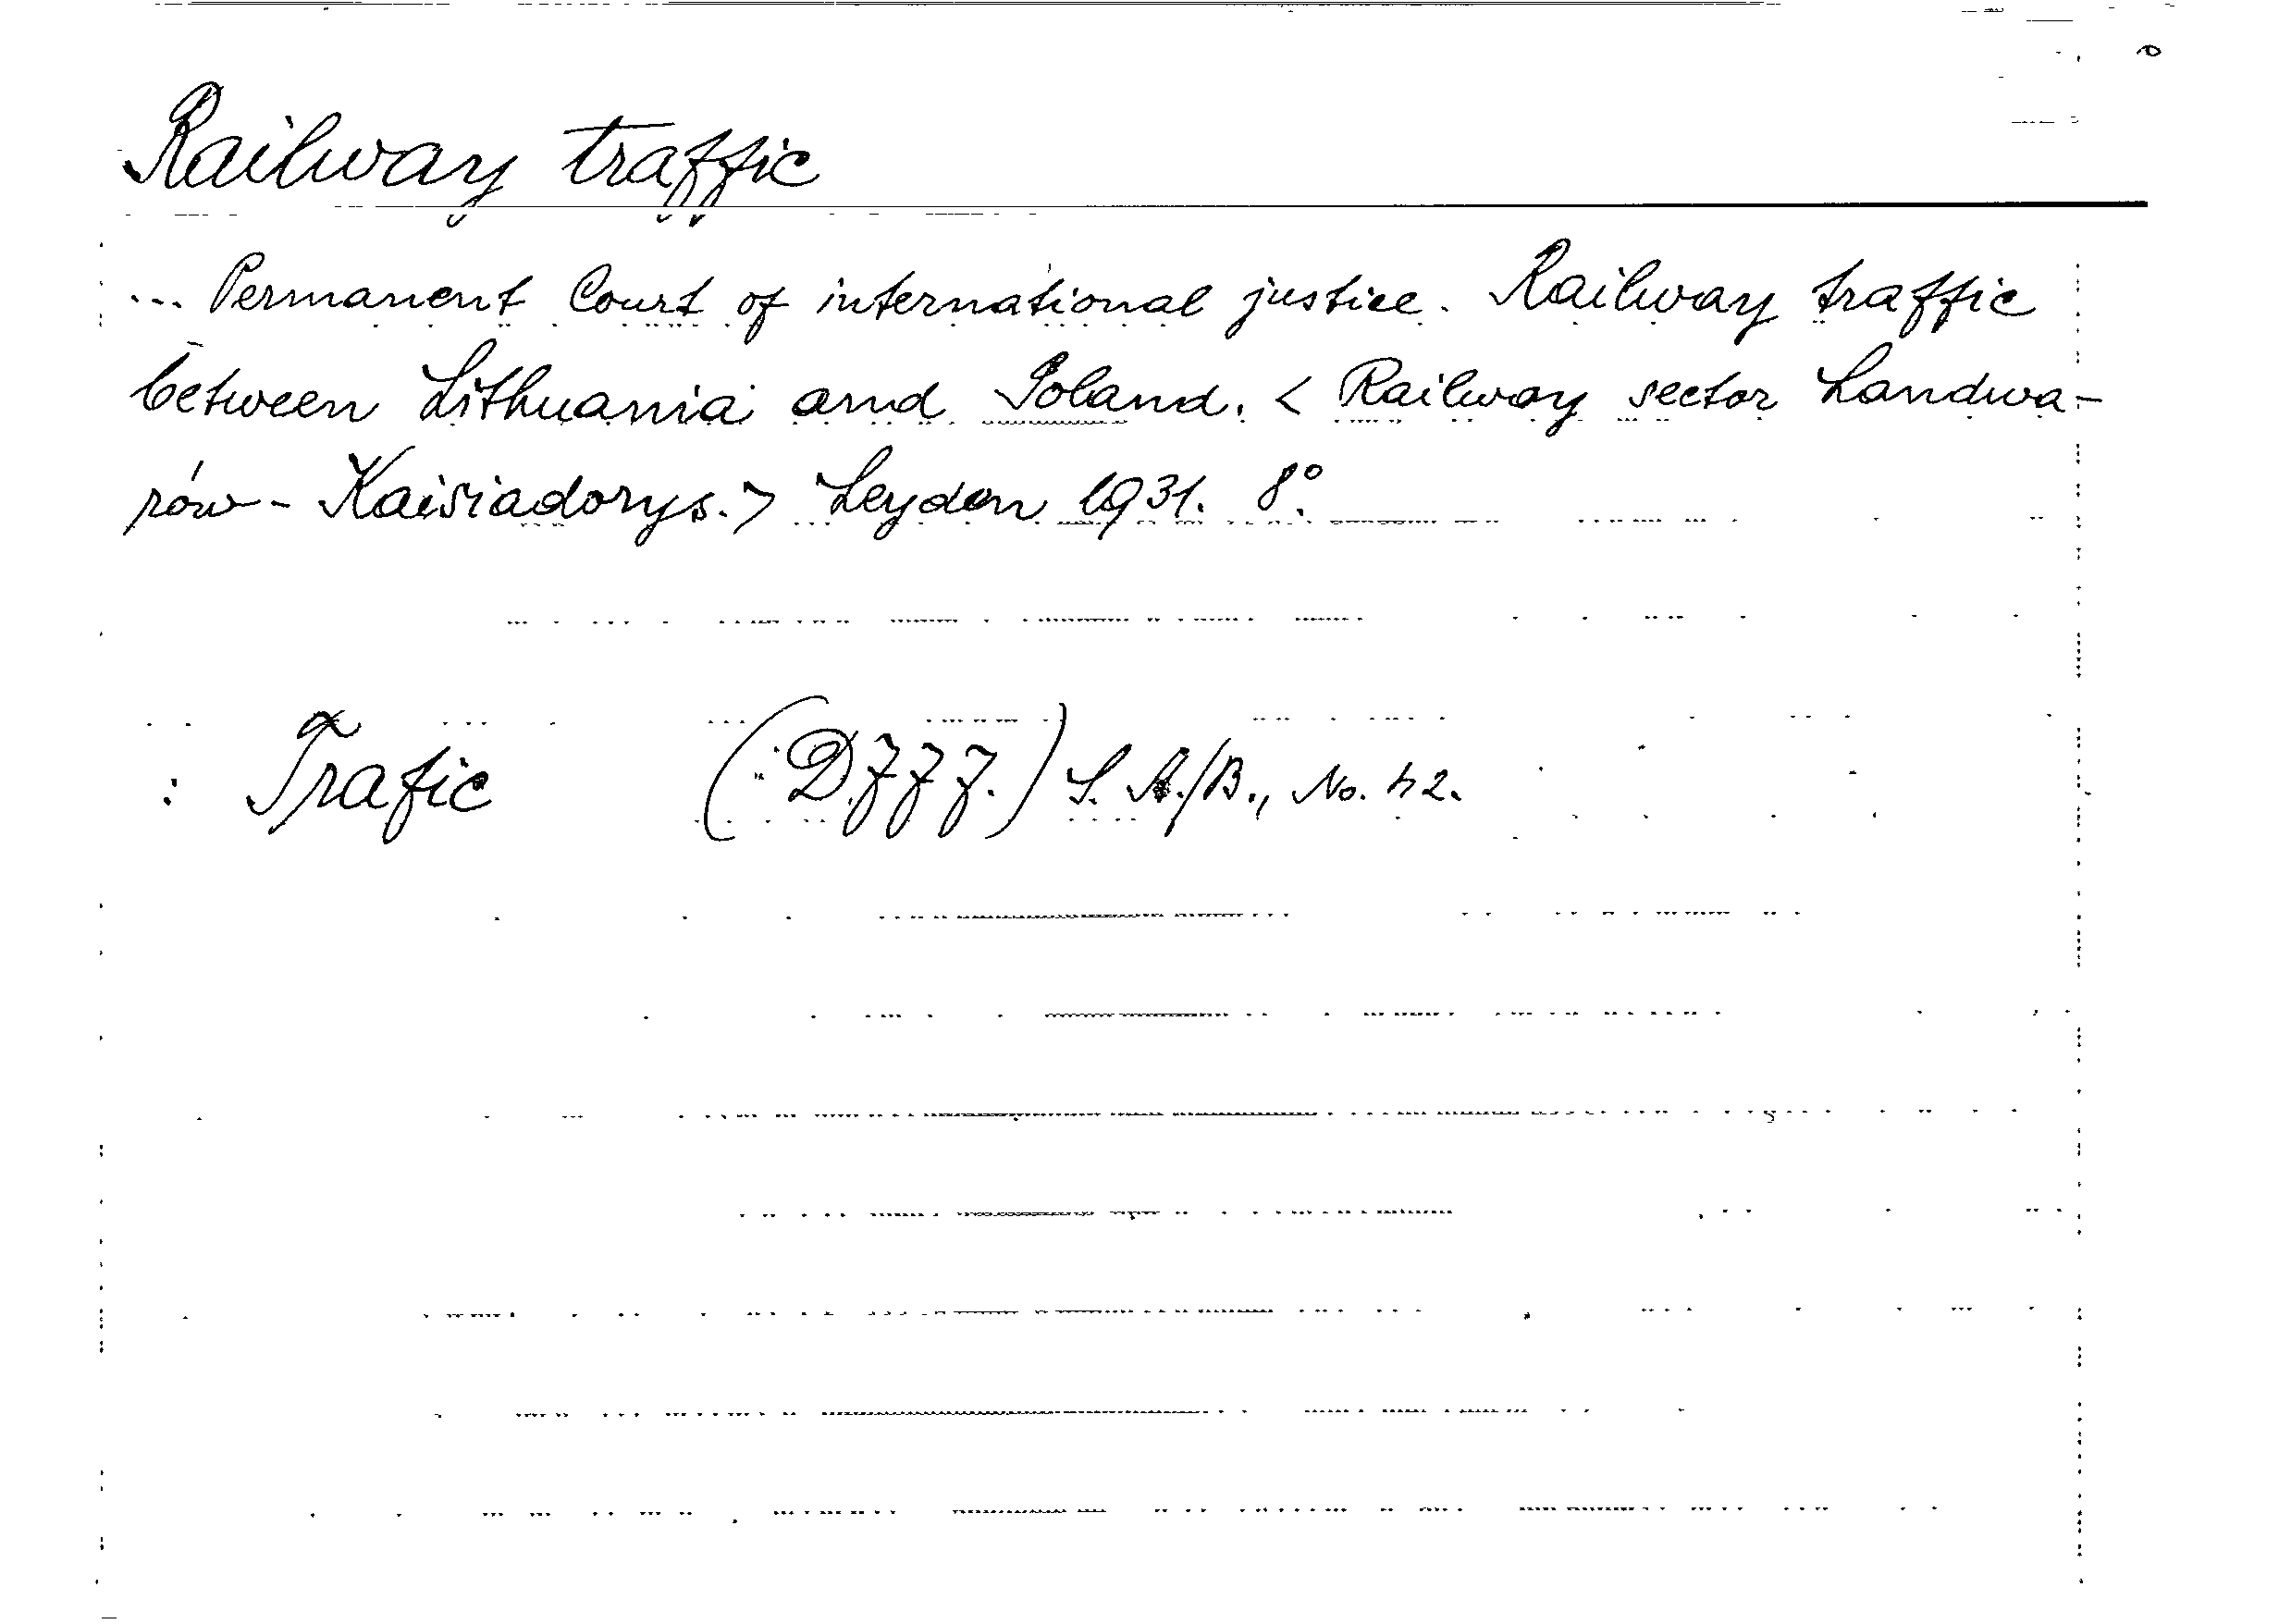 Railway traffic
... Permanent Court of international justice. Railway traffic
between Lithuania and Poland. < Railway sector Landwa-
rów - Kaisiadorys. > Leyden 1931. 8°.
: Trafic (: DJJJ.) S. A./B., No. 42.